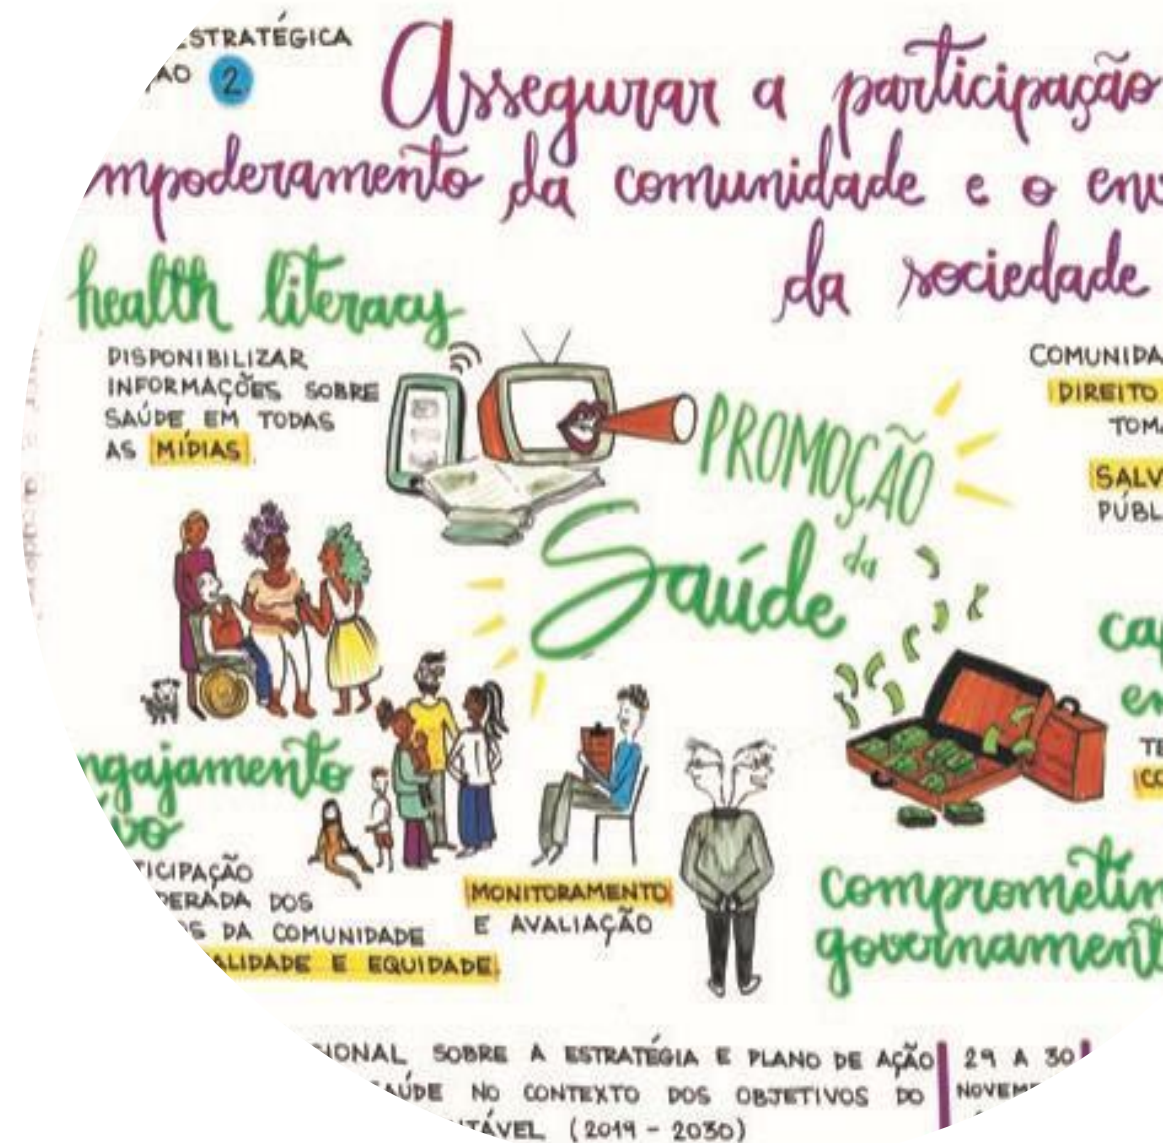 ESTRATÉGICA
2
Assegurar a participação
mpoderamento da comunidade e o env
da sociedade
health literacy
DISPONIBILIZAR
INFORMAÇÕES SOBRE
SAÚDE EM TODAS
AS MÍDIAS
PROMOÇÃO
da
Saúde
COMUNIDA
DIREITO
TOMA
SALV
PÚBL
ngajamento
TICIPAÇÃO
DERADA DOS
S DA COMUNIDADE
ALIDADE E EQUIDADE
MONITORAMENTO
E AVALIAÇÃO
cap
en
TE
CO
comprometim
governament
IONAL SOBRE A ESTRATÉGIA E PLANO DE AÇÃO
AÚDE NO CONTEXTO DOS OBJETIVOS DO
TÁVEL (2019 - 2030)
29 A 30
NOVEM